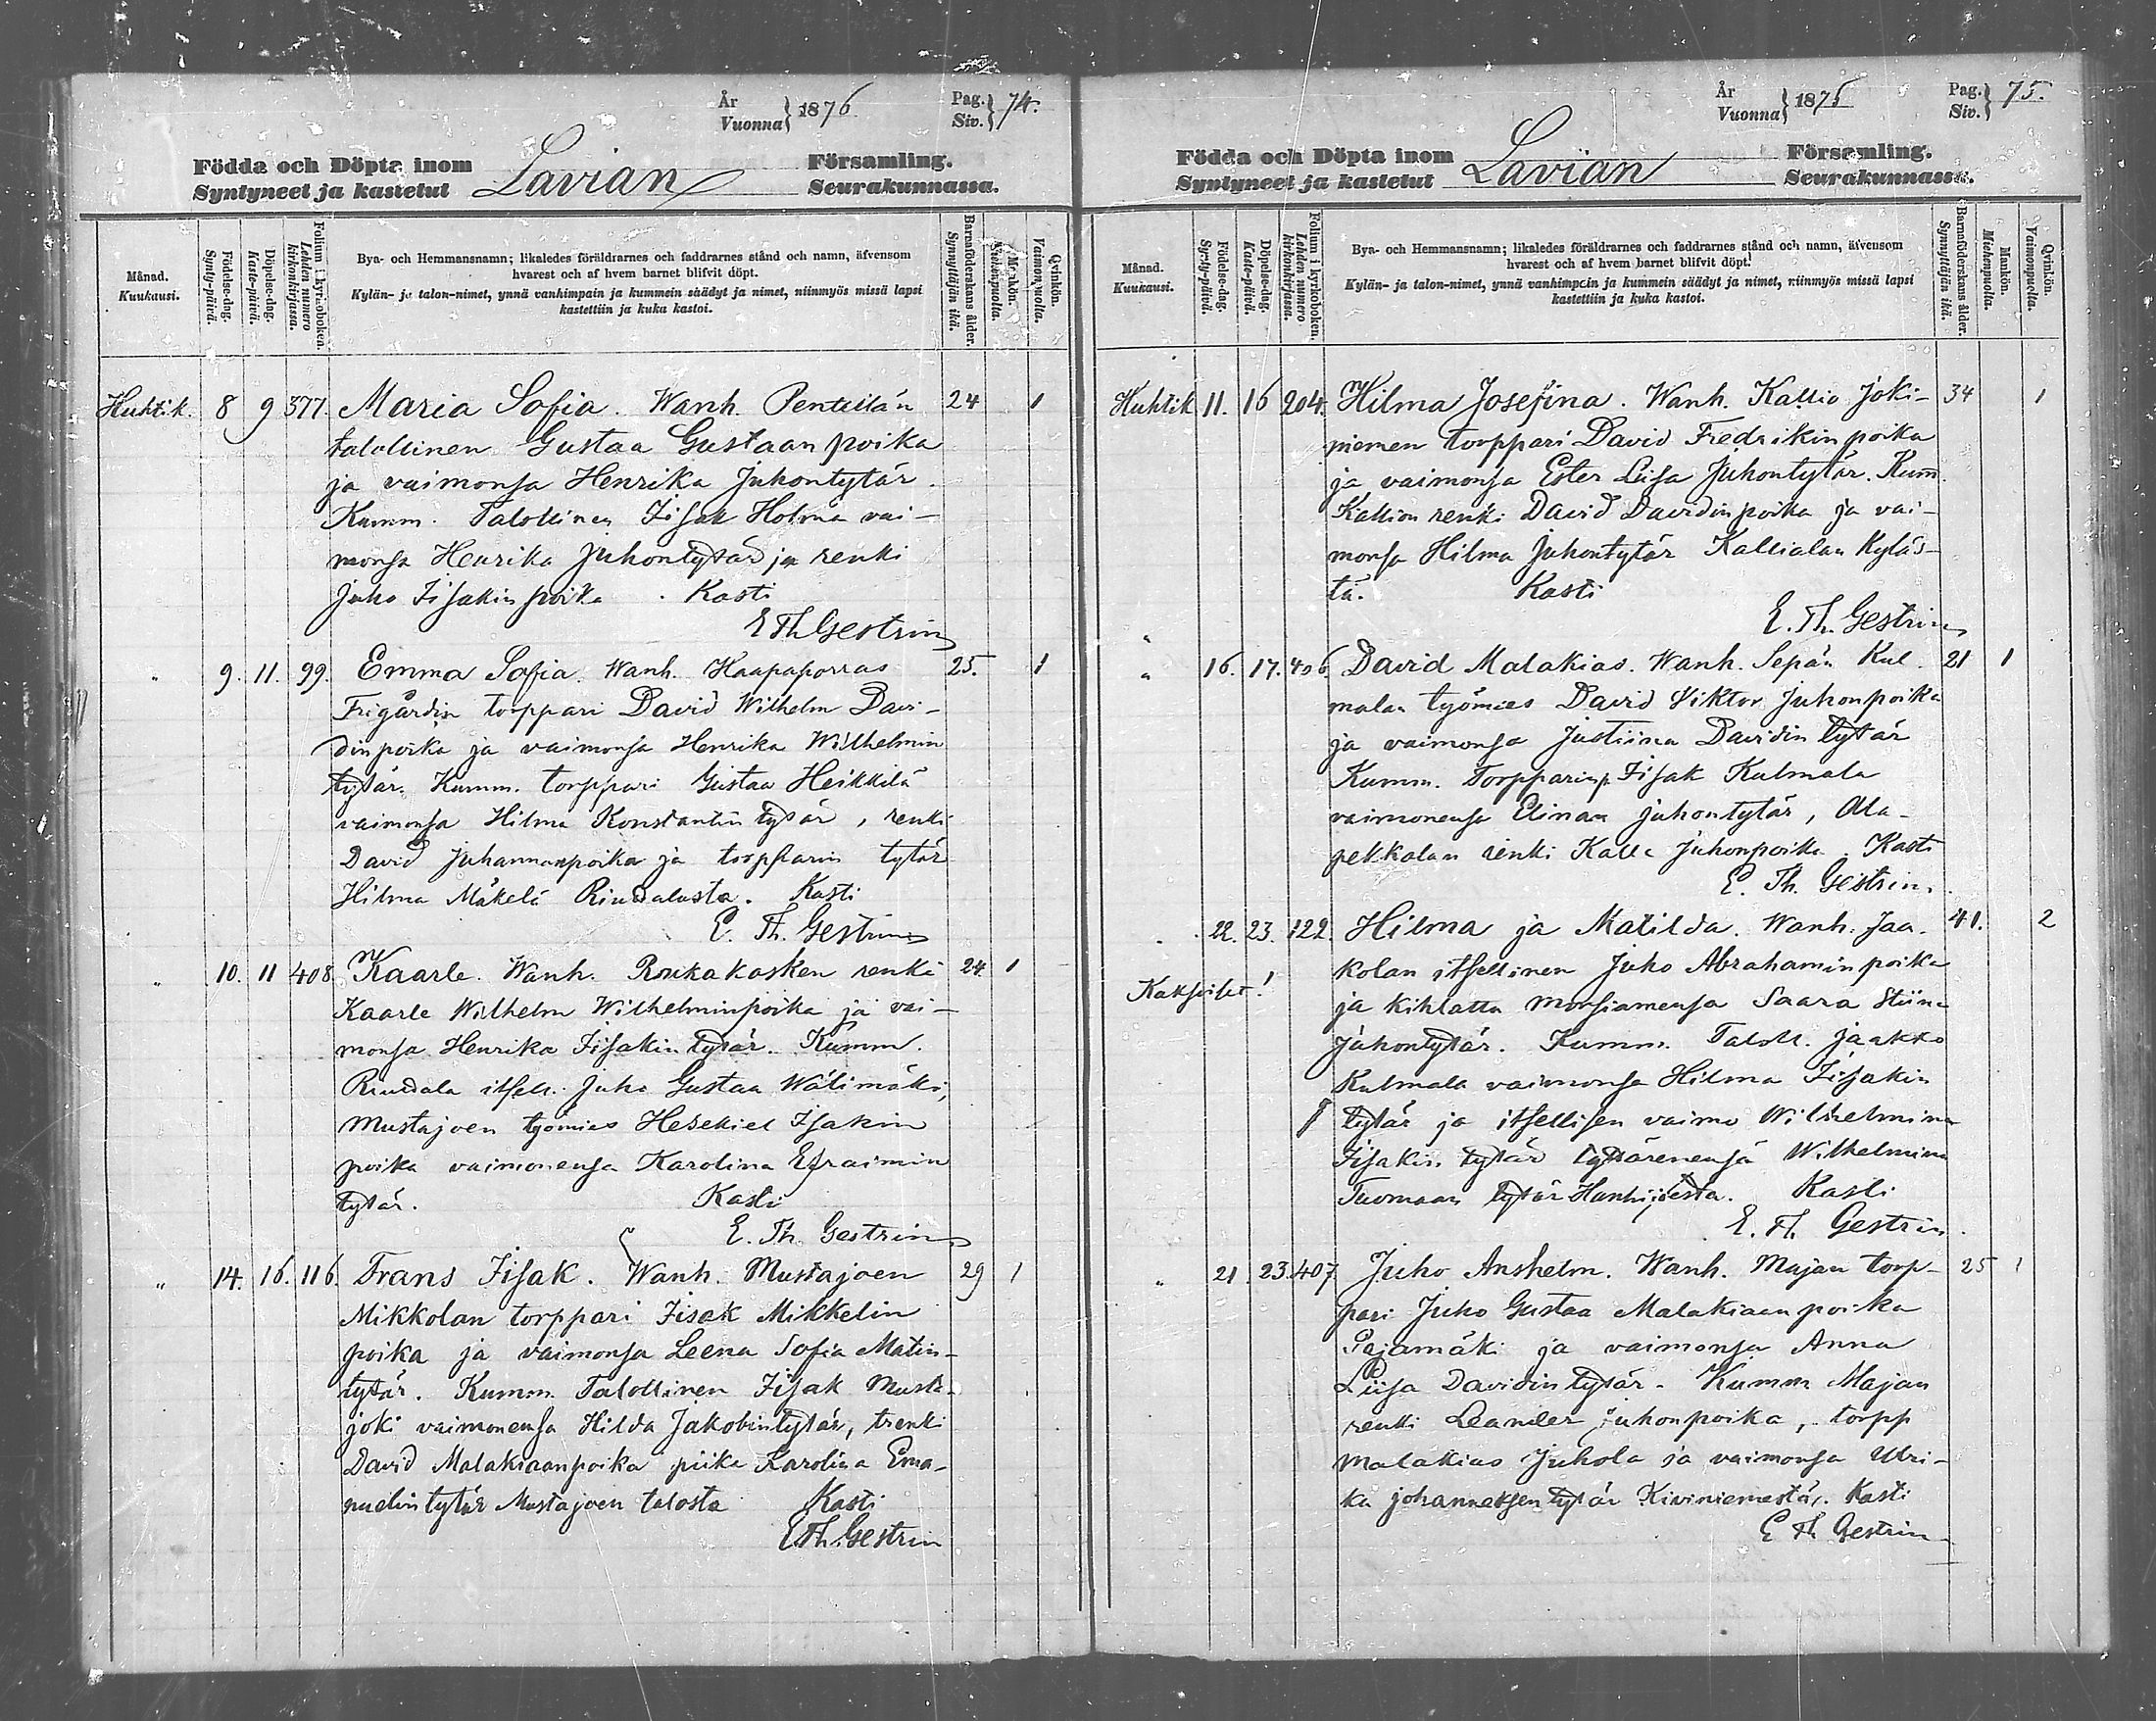 År
Vuonna } 1876.
Pag.
Siv. } 74.
Födda och Döpta inom
Syntyneet ja kastetut
Lavian
Församling.
Seurakunnassa.
Månad.
Kuukausi.
Födelse-dag.
Synty-päivä.
Döpelse-dag.
Kaste-päivä.
Folium i kyrkoboken.
Lehden numero kirkonkirjassa.
Bya- och Hemmansnamn; likaledes föräldrarnes och faddrarnes stånd och namn, äfvensom
hvarest och af hvem barnet blifvit döpt.
Kylän- ja talon-nimet, ynnä vanhimpain ja kummein säädyt ja nimet, niinmyös missä lapsi
kastettiin ja kuka kastoi.
Barnaföderskans ålder.
Synnyttäjän ikä.
Mankön.
Miehenpuolia.
Qvinkön.
Vaimonpuolia.
Huhtik. 8 9 377. Maria Sofia. Wanh. Penttilän 24 1
talollinen Gustaa Gustaanpoika
ja vaimonsa Henrika Juhontytär.
Kumm. Talollinen Iisak Holma vai-
monsa Henrika Juhontytär ja renki
Juho Iisakinpoika. Kasti
E Th Gestrin
" 9. 11. 99. Emma Sofia. Wanh. Haapaporras 25. 1
Frigårdin torppari David Wilhelm Davi-
dinpoika ja vaimonsa Henrika Wilhelmin
tytär. Kumm. torppari Gustaa Heikkilä
vaimonsa Hilma Konstantin tytär, renki
David Juhannanpoika ja torpparin tytär
Hilma Mäkelä Riudalasta. Kasti
E. Th. Gestrin
" 10. 11 408 Kaarle. Wanh. Roukakosken renki 24 1
Kaarle Wilhelm Wilhelminpoika ja vai-
monsa Henrika Iisakin tytär. Kumm.
Riudala itsell. Juho Gustaa Wälimäki,
Mustajoen työmies Hesekiel Isakin
poika vaimonensa Karolina Efraimin
tytär. Kasti
E. Th. Gestrin
" 14. 16. 116. Frans Iisak. Wanh. Mustajoen 29 1
Mikkolan torppari Iisak Mikkelin
poika ja vaimonsa Leena Sofia Matin-
tytär. Kumm. Talollinen Iisak Musta-
joki vaimonensa Hilda Jakobintytär, trenki
David Malakiaanpoika piika Karolina Ema-
nuelin tytär Mustajoen talosta Kasti
E Th. Gestrin
År
Vuonna } 1876
Pag.
Siv. } 75.
Födda och Döpta inom
Syntyneet ja kastetut
Lavian
Församling.
Seurakunnassa.
Månad.
Kuukausi.
Födelse-dag.
Synty-päivä.
Döpelse-dag.
Kaste-päivä.
Folium i kyrkoboken.
Lehden numero kirkonkirjassa.
Bya- och Hemmansnamn; likaledes föräldrarnes och faddrarnes stånd och namn, äfvensom
hvarest och af hvem barnet blifvit döpt.
Kylän- ja talon-nimet, ynnä vanhimpain ja kummein säädyt ja nimet, niinmyös missä lapsi
kastettiin ja kuka kastoi.
Barnaföderskans ålder.
Synnyttäjän ikä.
Mankön.
Miehenpuolia.
Qvinkön.
Vaimonpuolia.
Huhtik 11. 16 204. Hilma Josefina. Wanh. Kallio Joki- 34 1
niemen torppari David Fredrikinpoika
ja vaimonsa Ester Liisa Juhontytär. Kum̄.
Kallion renki David Davidinpoika ja vai-
monsa Hilma Juhontytär Kallialan Kyläs-
tä. Kasti
E. Th. Gestrin
" 16. 17. 406 David Malakias. Wanh. Sepän Kul- 21 1
malan työmies David Viktor Juhonpoika
ja vaimonsa Justiina Davidin tytär
Kumm. Torpparinp. Iisak Kulmala
vaimonensa Elinan Juhontytär, Ala-
pekkalan renki Kalle Juhonpoika. Kasti
E. Th. Gestrin.
22. 23. 122. Hilma ja Matilda. Wanh. Jaa- 41. 2
Kaksoiset!
kolan itsellinen Juho Abrahaminpoika
ja kihlattu morsiamensa Saara Stiina
Juhontytär. Kumm. Taloll. Jaakko
Kulmala vaimonsa Hilma Iisakin
tytär ja itsellisen vaimo Wilhelmina
Iisakin tytär tyttärenensä Wilhelmina
Tuomaan tytär Hanhijoesta. Kasti
E. Th. Gestrin.
" 21. 23. 407 Juho Anshelm. Wanh. Majan torp- 25 1
pari Juho Gustaa Malakiaanpoika
Pajamäki ja vaimonsa Anna
Liisa Davidin tytär. Kumm. Majan
renki Leander Juhonpoika, torpp
Malakias Juhola ja vaimonsa Ulri-
ka Johanneksen tytär Kiviniemestä. Kasti
E Th Gestrin